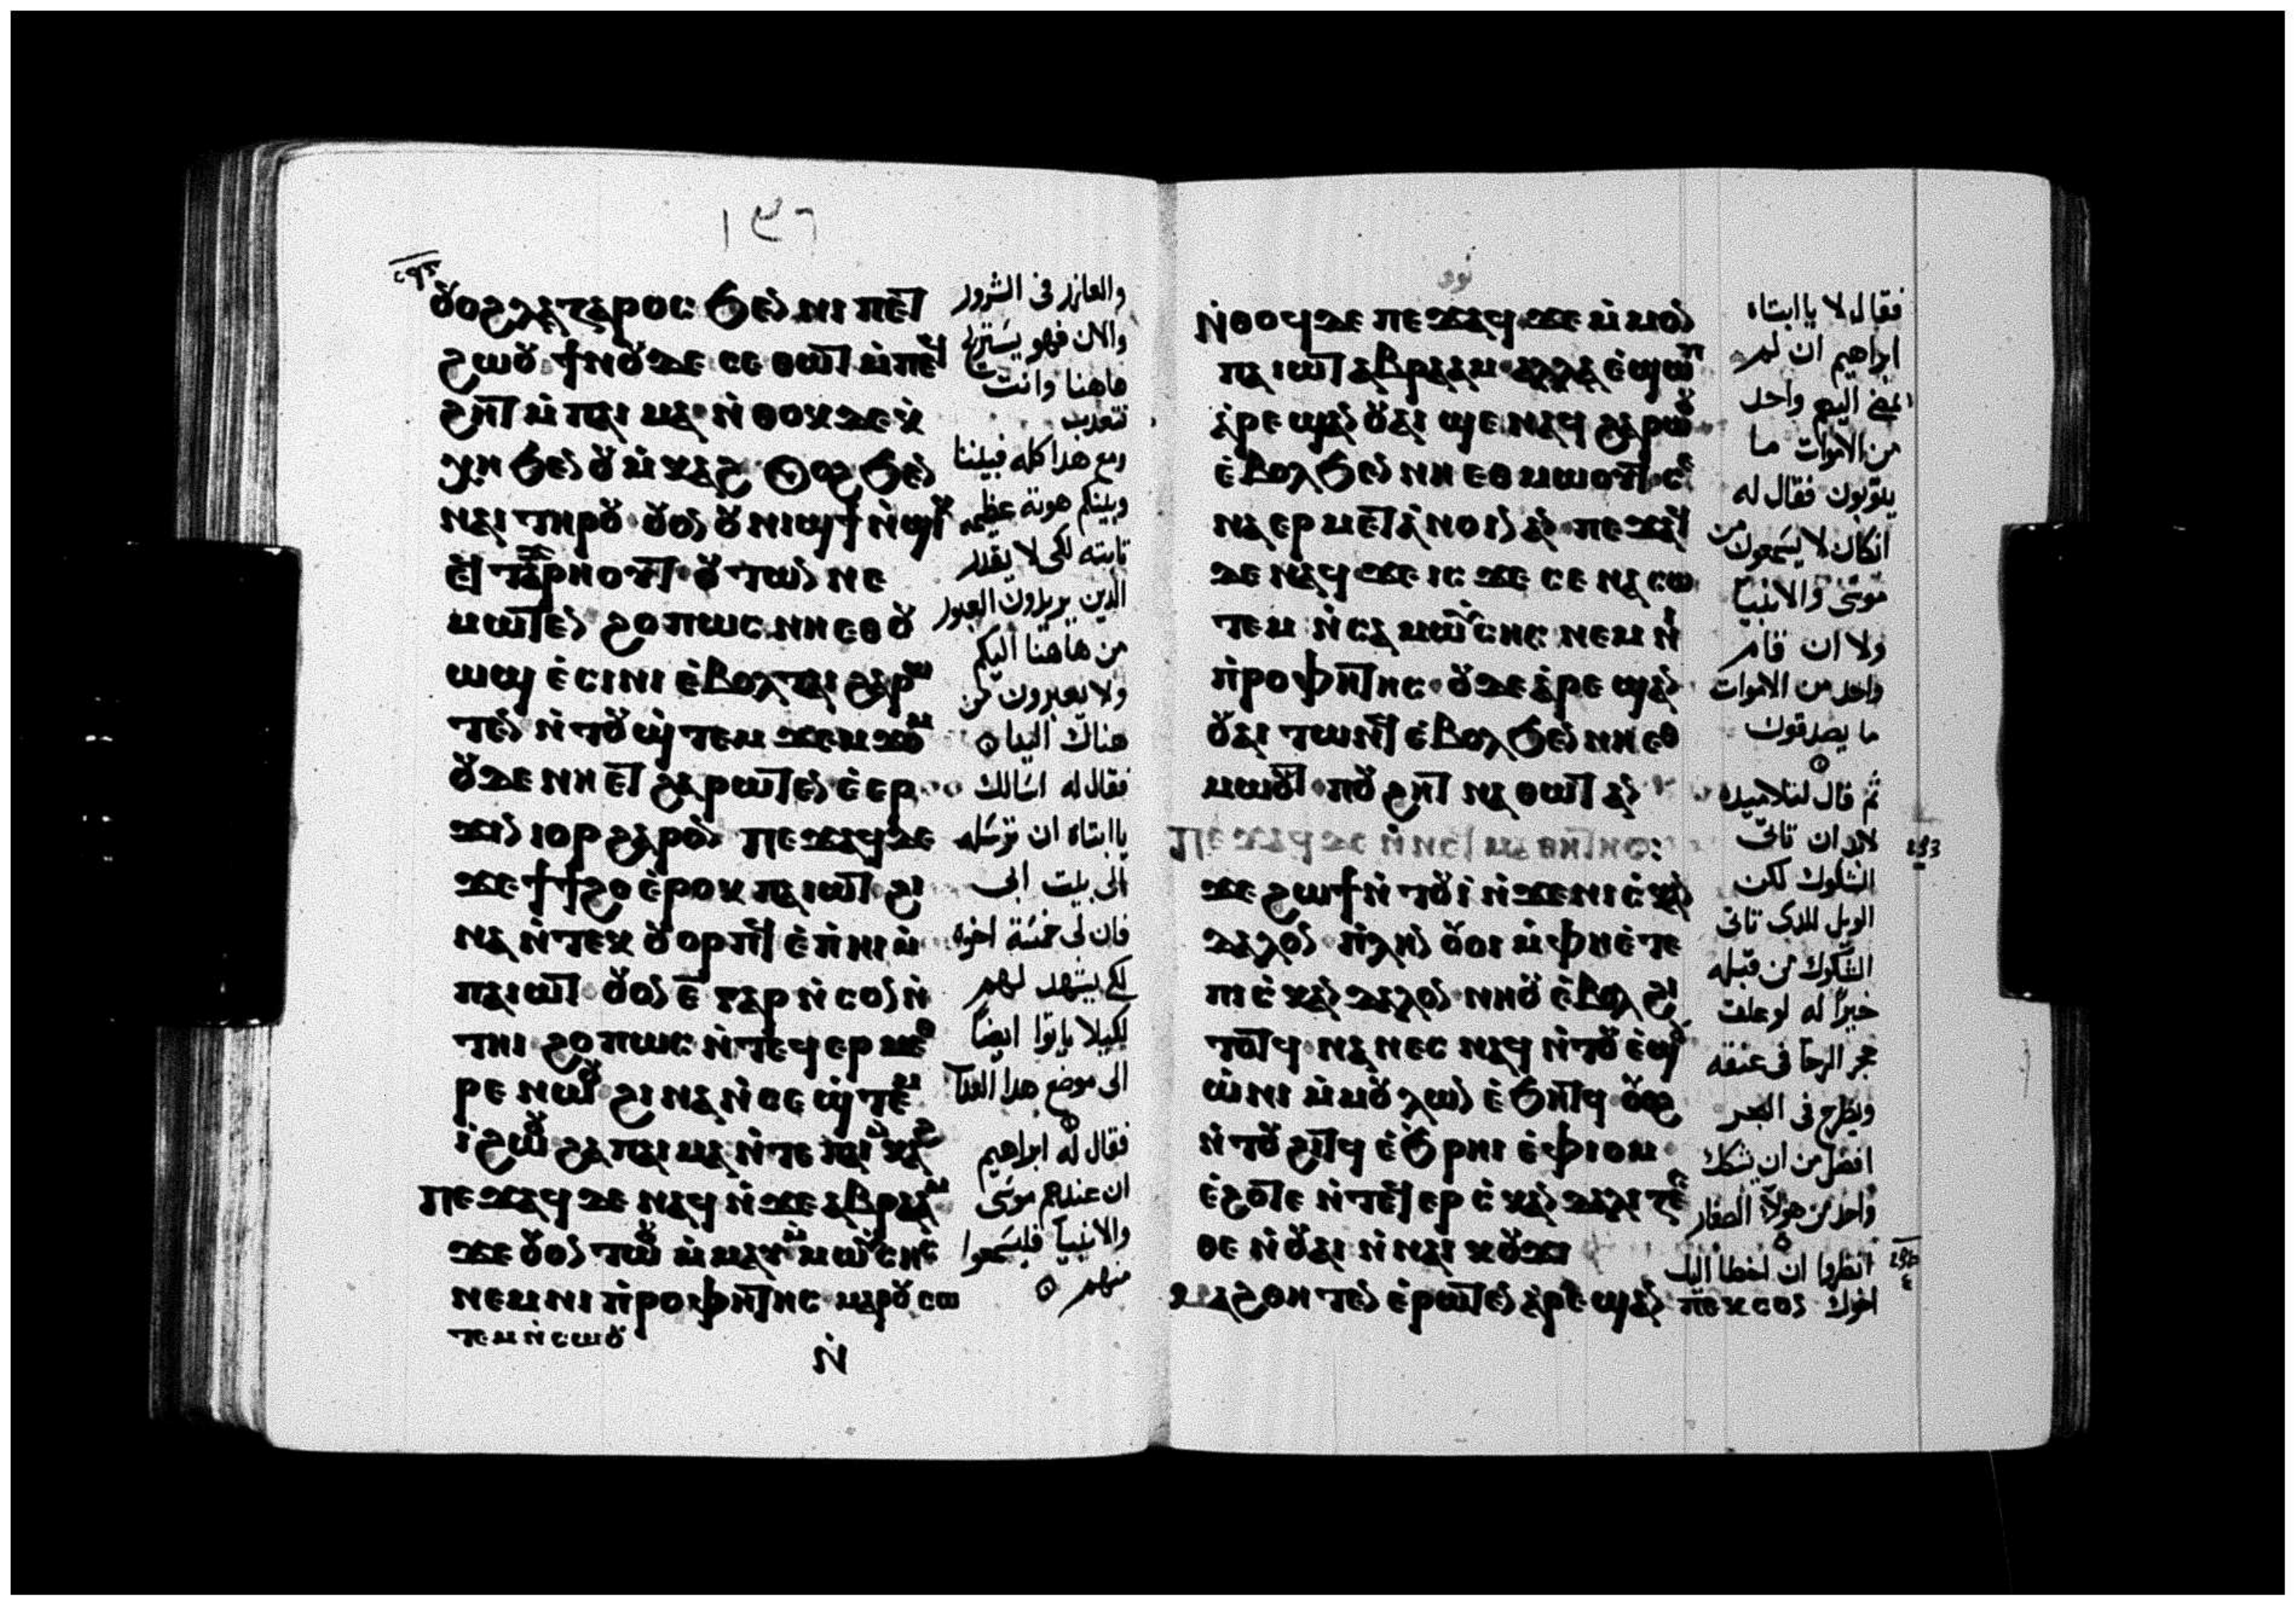 ⲟⲩⲟϩ ⲗⲁⲍⲁⲣⲟⲥ ϧⲉⲛ ⲛⲓ ⲡⲉⲧ
ϩⲱⲟⲩ ϯⲛⲟⲩ ⲇⲉ ⲥⲉ ⲑⲱⲧ ⲙ̇ⲡⲉϥ
ϩⲏⲧ ⲙ̇ ⲡⲁⲓ ⲙⲁ ⲛ̇ ⲑⲟⲕ ⲇⲉ ⲭ̇
ⲭⲏ ϧⲉⲛ ⲟⲩ ⲙ̇ⲕⲁϩ ⲟⲩⲟϩ ϧⲉⲛ
ⲛⲁⲓ ⲧⲏⲣⲟⲩ ⲟⲩⲟⲛ ⲟⲩ ⲛⲓϣϯ ⲛ̇ϣⲓ
ⲙⲱⲧⲉⲛ ϩⲟⲡⲱⲥ ⲛⲏ ⲉⲑⲟⲩ
ⲱϣ ⲉ̇ⲥⲓⲛⲓ ⲉ̇ⲃⲟⲗ ⲧⲁⲓ ϩⲁⲣⲱ
ⲧⲉⲛ ⲛ̇ⲧⲟⲩ ϣ̇ⲧⲉⲙ ϫⲉⲙ ϫⲟⲙ
ⲟⲩⲇⲉ ⲛⲏ ⲉⲧ ϩⲁⲣⲱⲧⲉⲛ ⲉ̇ⲉⲣ
ϫⲓⲛ ⲓⲟⲣ ϩⲁⲣⲟⲛ ⲡⲉϫⲁϥ ⲇⲉ
ϫⲉ ϯϯϩⲟ ⲉ̇ⲣⲟⲕ ⲡⲁⲓⲱⲧ ϩⲓ
ⲛⲁ ⲛ̇ⲧⲉⲕ ⲟⲩⲟⲣⲡϥ ⲉ̇ⲡ̇ⲏⲓ ⲙ̇
ⲡⲁⲓⲱⲧ ⲟⲩⲟⲛ ⲉ̅ ⲅⲁⲣ ⲛ̇ ⲥⲟⲛ ⲛ̇
ⲧⲏⲓ ϩⲟⲡⲱⲥ ⲛ̇ⲧⲉϥ ⲉⲣ ⲙⲉⲑ
ⲣⲉ ⲛⲱⲟⲩ ϩⲓⲛⲁ ⲛ̇ⲥⲉ ϣ̇ⲧⲉⲙ
ⲓ̇ ϩⲱⲟⲩ ϩⲁ ⲡⲁⲓ ⲙⲁ ⲛ̇ⲧⲉ ⲡⲁⲓ ⲙⲕⲁϩ
ⲡⲉϫⲁϥ ⲇⲉ ⲛⲁϥ ⲛ̇ϫⲉ ⲁⲃⲣⲁⲁⲙ
ϫⲉ ⲟⲩⲟⲛ ⲧⲱⲟⲩ ⲙ̇ⲙⲁⲩ ⲙ̇ⲙⲱⲩⲥⲏⲥ
ⲛⲉⲙ ⲛⲓ ⲡ̇ⲣⲟⲫⲏⲧⲏⲥ ⲙⲁⲣⲟⲩ ⲥⲱ
ⲧⲉⲙ ⲛ̇ⲥⲱⲟⲩ
ⲛ̇
والعازر فى الشرور
والان فهو يستريح
هاهنا وانت
تتعدب
ومع هدا كله فبيننا
وبينكم هوته عظيمه
تابته لكى لا يقدر
الدين يريدون العبور
من هاهنا اليكم
ولا يعبرون من
هناك الينا
فقال له اسالك
يا ابتاه ان ترسله
الى بيت ابى
فان لى خمسة اخوه
لكى يشهد لهم
لكيلا ياتوا ايضا
الى موضع هدا العداب
فقال له ابراهيم
ان عندهم موسى
والانبيا فليسمعوا
منهم
ⲛ̇ⲑⲟϥ ⲇⲉ ⲡⲉϫⲁϥ ϫⲉ ⲙ̇ⲙⲟⲛ
ⲡⲁⲓⲱⲧ ⲁⲃⲣⲁⲁⲙ ⲁⲗⲗⲁ ⲉ̇ϣⲱⲡ
ⲁ̇ⲣⲉϣⲁⲛ ⲟⲩⲁⲓ ϣⲉ ⲛⲁϥ ϩⲁⲣⲱⲟⲩ
ⲉ̇ⲃⲟⲗ ϧⲉⲛ ⲛⲏ ⲉⲑ ⲙⲱⲟⲩⲧ ⲥⲉ
ⲛⲁ ⲉⲣ ⲙⲉⲧⲁ̇ⲛⲟⲓⲛ ⲁⲛ ⲡⲉϫⲁϥ
ⲇⲉ ⲛⲁϥ ϫⲉ ⲓⲥ ϫⲉ ⲥⲉ ⲛⲁ ⲥⲱ
ⲧⲉⲙ ⲛ̇ⲥⲁ ⲙⲱⲩⲥⲏⲥ ⲛⲉⲙ ⲛⲓ
ⲡ̇ⲣⲟⲫⲏⲧⲏⲥ ⲟⲩⲇⲉ ⲁ̇ⲣⲉϣⲁⲛ
ⲟⲩⲁⲓ ⲧⲱⲛϥ ⲉ̇ⲃⲟⲗ ϧⲉⲛ ⲛⲏ ⲉⲑ
ⲙⲱⲟⲩⲧ ⲡⲟⲩ ϩⲏⲧ ⲛⲁ ⲑⲱⲧ ⲁⲛ
ⲡⲉϫⲁϥ ⲇⲉ ⲛ̇ⲛⲉϥⲙⲁⲑⲏⲧⲏⲥ:
ϫⲉ ϩⲱϯ ⲛ̇ⲧⲟⲩⲓ̇ ⲛ̇ϫⲉ ⲛⲓ ⲥ̇ⲕⲁⲛ
ⲇⲁⲗⲟⲛ ⲡ̇ⲗⲏⲛ ⲟⲩⲟⲓ ⲙ̇ⲫⲏ ⲉ̇ⲧⲉ
ⲡⲓ ⲥ̇ⲕⲁⲛⲇⲁⲗⲟⲛ ⲛⲏⲟⲩ ⲉ̇ⲃⲟⲗ ϩⲓ
ⲧⲟⲧϥ ⲛⲁⲛⲉⲥ ⲛⲁϥ ⲛ̇ⲧⲟⲩ ⲉ̇ϣ
ⲱ̇ⲛⲓ ⲙ̇ⲙⲟⲩⲗⲱⲛ ⲉ̇ϧⲏⲧϥ ⲟⲩⲟϩ
ⲛ̇ⲧⲟⲩ ϩⲓⲧϥ ⲉ̇ϧⲣⲏⲓ ⲉ̇ⲫⲓⲟⲙ
ⲉ̇ϩⲟⲧⲉ ⲛ̇ⲧⲉϥ ⲉⲣ ⲥ̇ⲕⲁⲛⲇⲁⲗⲓⲍⲉⲥ
ⲑⲉ ⲛ̇ⲟⲩⲁⲓ ⲛ̇ⲛⲁⲓ ⲕⲟⲩϫⲓ
ⲙⲁϩⲑⲏⲧⲉⲛ ⲉ̇ⲣⲱⲧⲉⲛ ⲁ̇ⲣⲉϣⲁⲛ ⲡⲉⲕⲥⲟⲛ
فقال لا يا ابتاه
ابراهيم ان لم
يمض اليهم واحد
من الاموات ما
يتوبون فقال له
انكان لا يسمعون من
موسى والانبيا
ولا ان قام
واحد من الاموات
ما يصدقون
ثم قال لتلاميده
لابد ان تاتى
الشكوك لكن
الويل للدى تاتى
الشكوك من قبله
خيرا له لو علق
حجر الرحا فى عنقه
ويطرح فى البحر
افضل من ان يشكك
واحد من هولا الصغار
انظروا ان اخطا اليك
اخوك